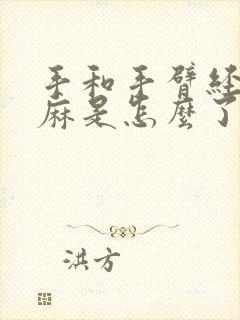 手和手臂经
麻是怎麼了
洪方